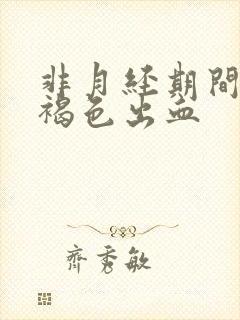 非月经期间
褐色出血
齐秀敏